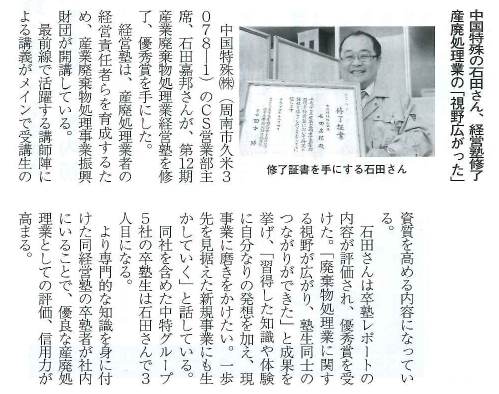 中国特殊の石田さん、経営塾修了
産廃処理業の「視野広がった」
修了証書を手にする石田さん
修了証書
中国特殊㈱(周南市久米3
078―1)のCS営業部主
席、石田嘉邦さんが、第12期
産業廃棄物処理業経営塾を修
了、優秀賞を手にした。
経営塾は、産廃処理業者の
経営責任者らを育成するた
め、産業廃棄物処理事業振興
財団が開講している。
最前線で活躍する講師陣に
よる講義がメインで受講生の
資質を高める内容になってい
る。
石田さんは卒塾レポートの
内容が評価され、優秀賞を受
けた。「廃棄物処理業に関す
る視野が広がり、塾生同士の
つながりができた」と成果を
挙げ、「習得した知識や体験
に自分なりの発想を加え、現
事業に磨きをかけたい。一歩
先を見据えた新規事業にも生
かしていく」と話している。
同社を含めた中特グループ
5社の卒塾生は石田さんで3
人目になる。
より専門的な知識を身に付
けた同経営塾の卒塾者が社内
にいることで、優良な産廃処
理業としての評価、信用力が
高まる。